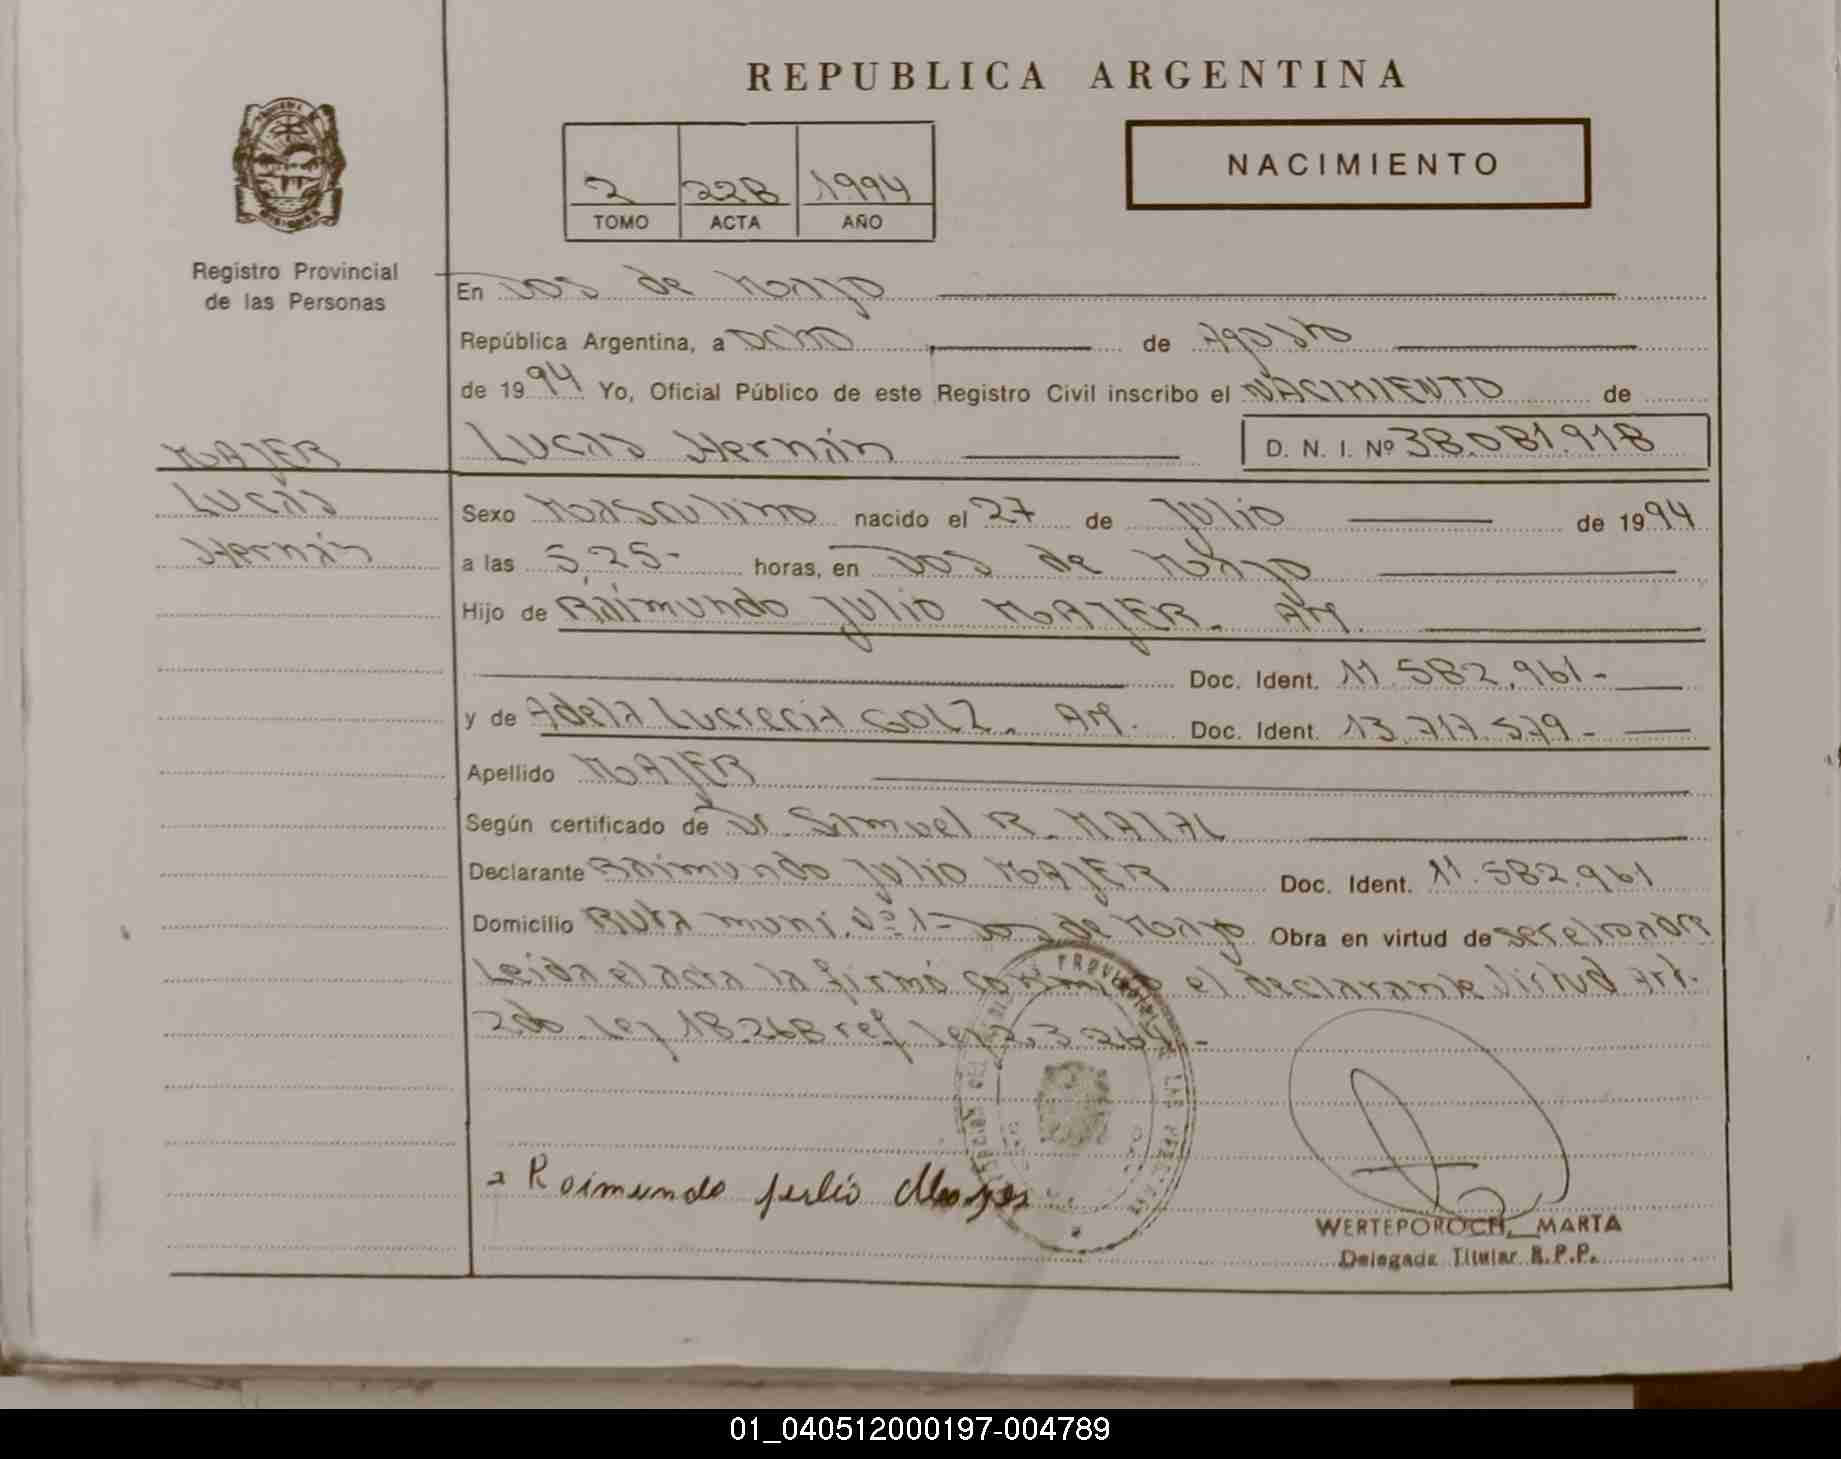 REPUBLICA ARGENTINA
NACIMIENTO
2 228 1994
TOMO ACTA AÑO
Registro Provincial
de las Personas
En Dos de Mayo
República Argentina, a ocho de Agosto
de 1994 Yo, Oficial Público de este Registro Civil inscribo el NACIMIENTO de
MAJER
Lucas Hernán D. N. I. Nº 38.081.918
Lucas
Hernán
Sexo Masculino nacido el 27 de Julio de 1994
a las 5,25- horas, en Dos de Mayo
Hijo de Raimundo Julio MAJER. AM.
Doc. Ident. 11.582.961-
y de Adela Lucrecia GOLZ. AM. Doc. Ident. 13.717.579-
Apellido MAJER
Según certificado de Dr. Samuel R.
Declarante Raimundo Julio MAJER Doc. Ident. 11.582.961
Domicilio Ruta muni. Nº 1- Dos de Mayo Obra en virtud de ser el padre
Leida el acta la firmó conmigo el declarante Art.
2do Ley 18.268 ref ley 23.264.-
Raimundo Julio Mayer
WERTEPOROCH, MARTA
Delegada Titular R.P.P.
01_040512000197-004789